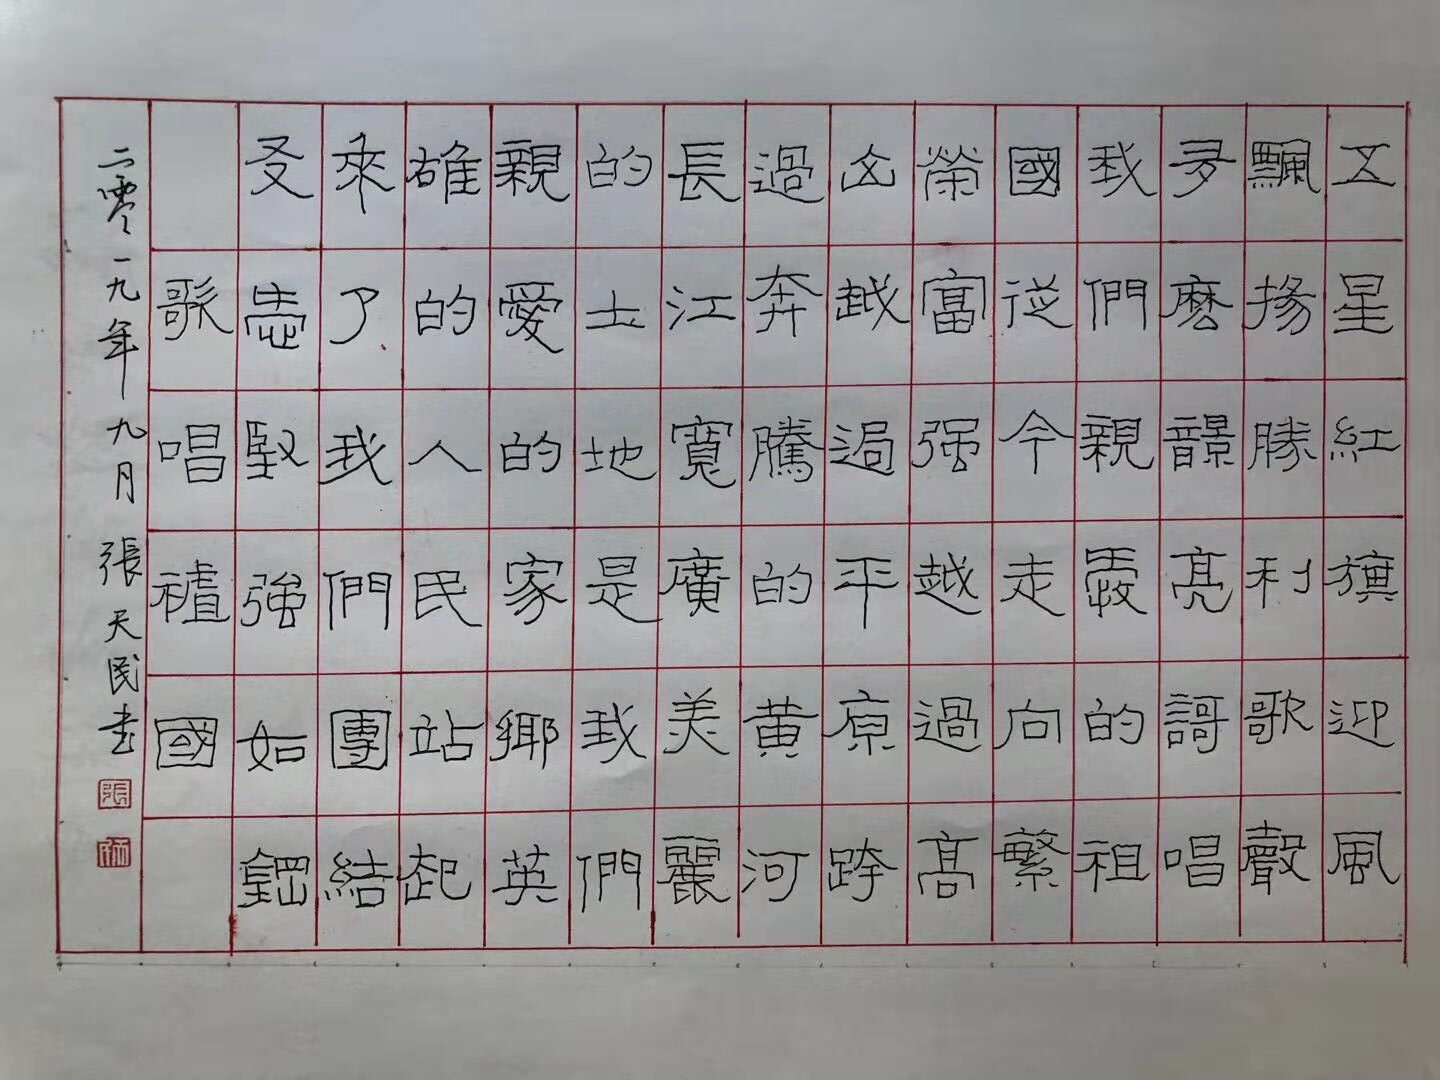 五星紅旗迎風
飄揚勝利歌聲
多麼響亮謌唱
我們親愛的祖
國從今走向繁
榮富强越過高
山越過平原跨
過奔騰的黄河
長江寬廣美麗
的土地是我們
親愛的家鄉英
雄的人民站起
來了我們團結
友愛堅強如鋼
歌唱祖國
二零一九年九月張天民书
張